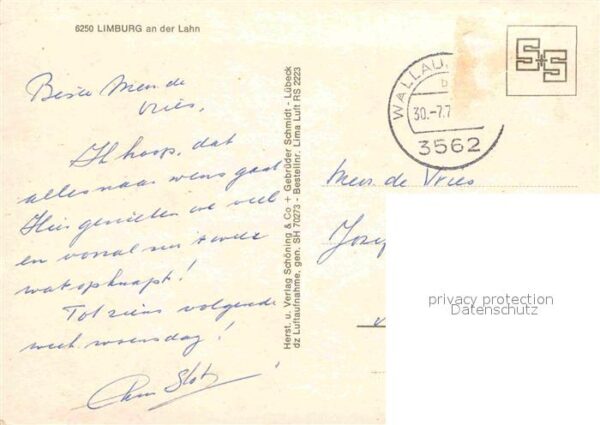 6250 LIMBURG an der Lahn
Beste Men de
Vries,
Ik hoop, dat
alles naar wens gaat
Hier genieten we veel
en vooral nu 't weer
wat opknapt!
Tot ziens volgende
week woensdag!
Herst. u. Verlag Schöning & Co + Gebrüder Schmidt - Lübeck
dz Luftaufnahme, gen. SH 70273 - Bestellnr. Lima Luft RS 2223
S+S
WALLAU,
b
30.-7.7
3562
Men de Vries
Josef
privacy protection
Datenschutz